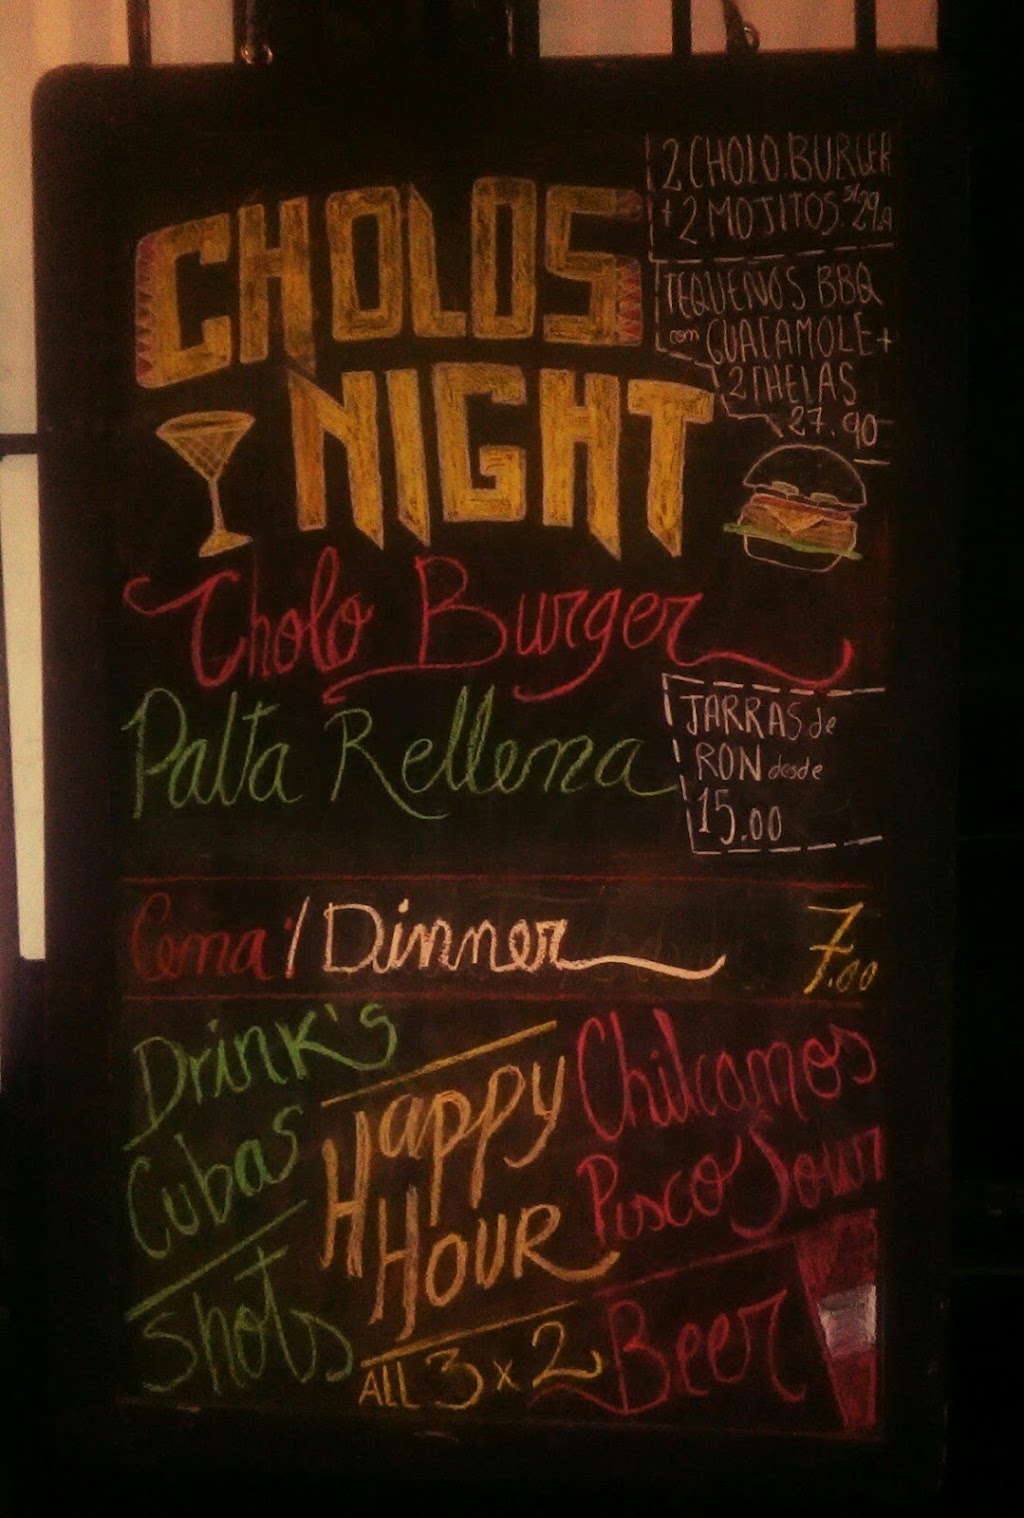 CHOLOS
NIGHT
2 CHOLO.BURGER
+ 2 MOJITOS S/29.9
TEQUEÑOS BBQ
con GUACAMOLE +
2 THELAS
27.90
Cholo Burger
Palta Rellena
JARRAS de
RON desde
15.00
Cena / Dinner 7.00
Drink's
Cubas
Shots
Happy
Hour
ALL 3 x 2
Chilcanos
Pisco Sour
Beer